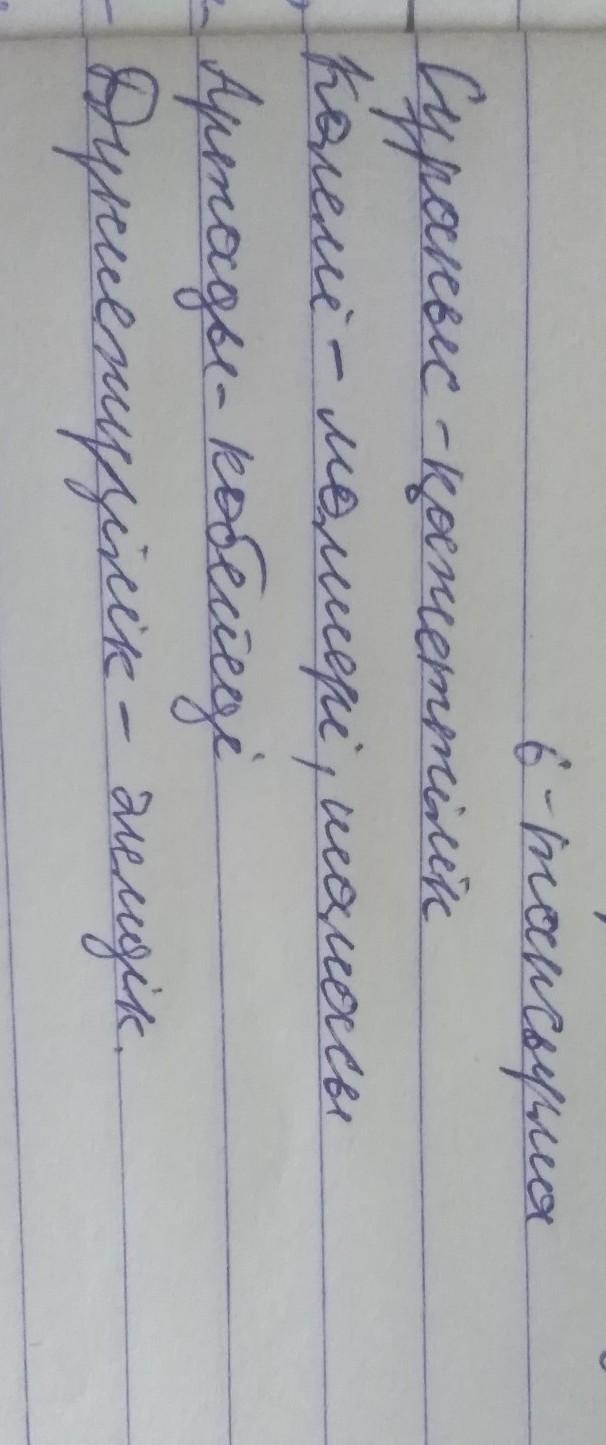 6-тапсырма
Сұраныс-қажеттілік
Көлемі - мөлшері, шамасы
Артады- көбейеді
Дүниетүзілік - әлемдік.